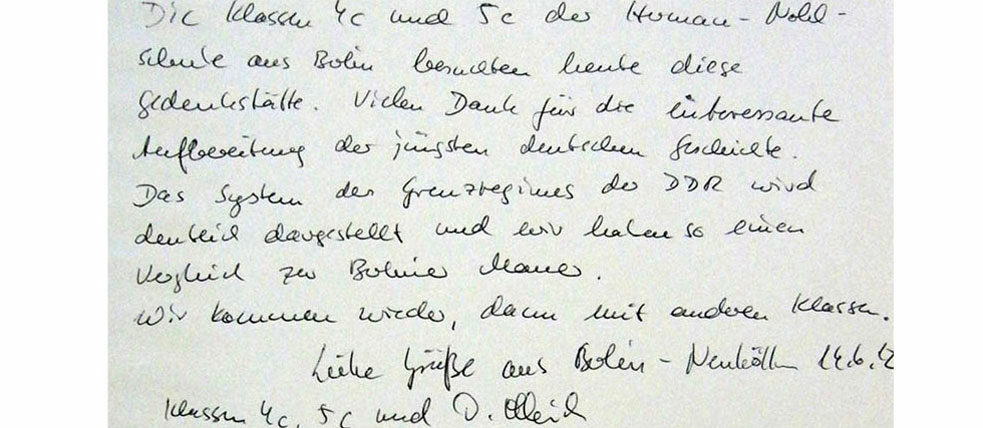 Die Klassen 4c und 5c der Herman-Nohl-
Schule aus Berlin besuchten heute diese
Gedenkstätte. Vielen Dank für die interessante
Aufbereitung der jüngsten deutschen Geschichte.
Das System des Grenzregimes der DDR wird
deutlich dargestellt und wir haben so einen
Vergleich zur Berliner Mauer.
Wir kommen wieder, dann mit anderen Klassen.
Liebe Grüße aus Berlin-Neukölln 14.6.12
Klassen 4c, 5c und D.